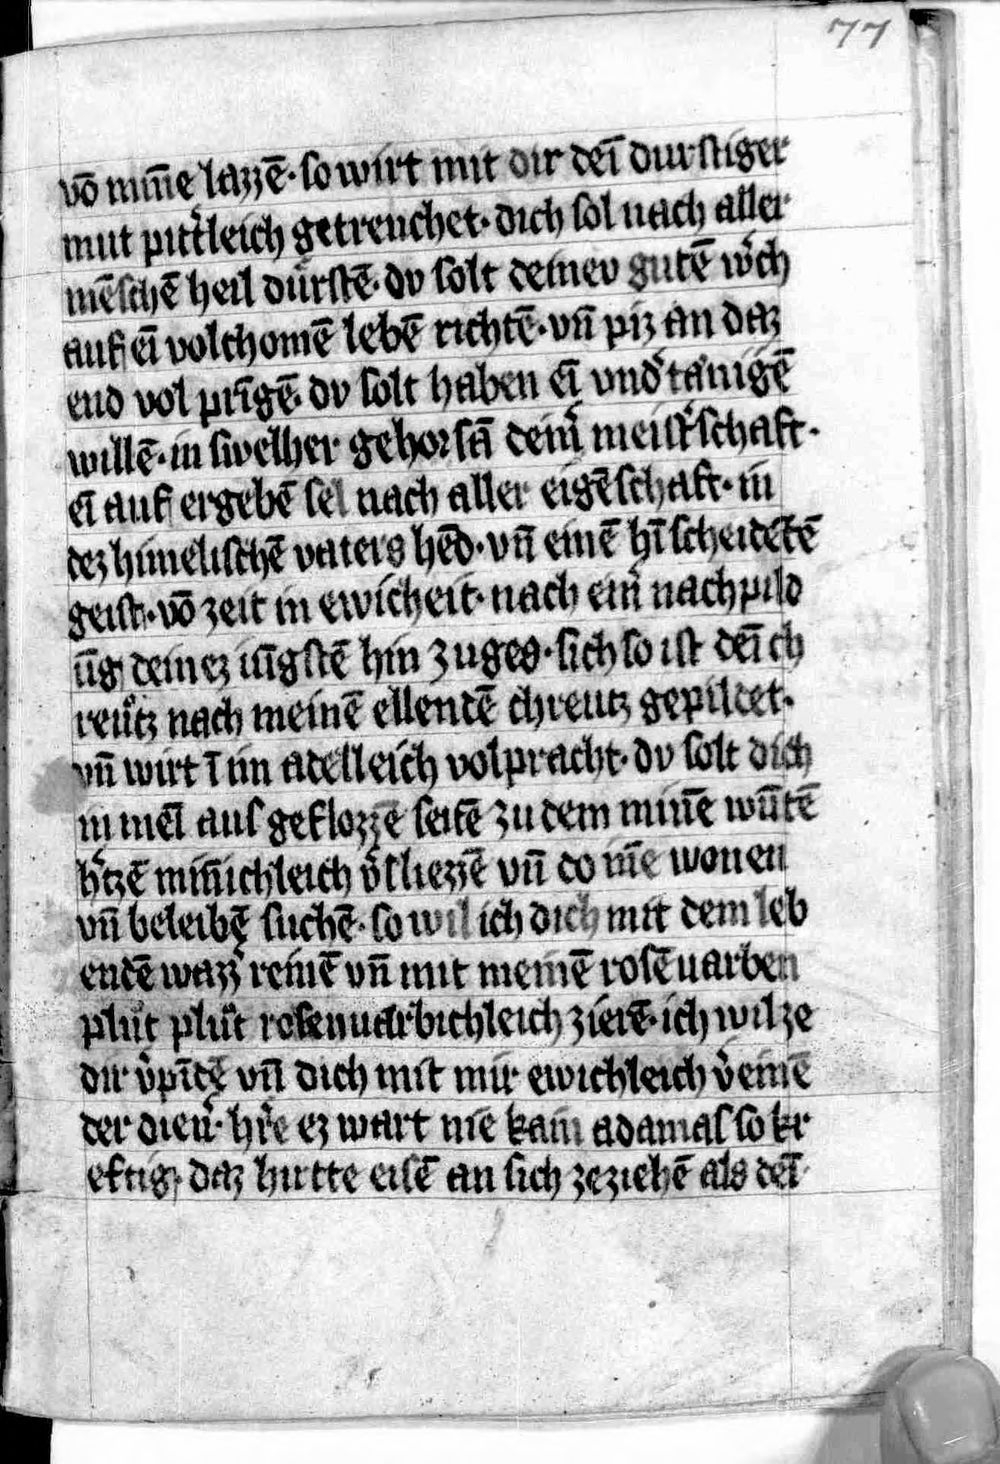 77
võ miñe lazzẽ · so wirt mit dir dei᷑n durstiger
mut pitt᷑leich getrenchet · dich sol nach aller
mẽschẽ heil dúrstẽ · dv solt deinev gutẽ w᷑ch
auf eĩ volchomẽ lebẽ richtẽ · vñ piz an daz
end vol prĩgẽ · dv solt haben eĩ vnd᷑tanigẽ
willẽ · in swelher gehorsã deiñ᷑ meist᷑schaft ·
eĩ auf ergebẽ sel nach aller eigẽschaft · in
dez himelischẽ vaters hẽd · vñ einẽ hĩ scheidẽtẽ
geist · võ zeit in ewicheit · nach ein᷑ nachpild
ũg deinez iũgstẽ hin zuges · sich so ist deĩ ch
reútz nach meinẽ ellendẽ chreutz gepildet ·
vñ wirt ĩ im adelleich volpracht · dv solt dich
in meĩ auf geflozzẽ seitẽ zu dem miñe wũtẽ
h᷑tzẽ miñichleich v᷑sliezzẽ vñ do iñe wonen
vñ beleibẽ suchẽ · so wil ich dich mit dem leb
endẽ wazz᷑ reinẽ vñ mit meinẽ rosẽuarben
plút plút rosenuarbichleich zierẽ · ich wil ze
dir v᷑pĩdẽ vñ dich mit mir ewichleich v᷑einẽ
der dien᷑ · h᷑re ez wart nie kain adamas so kr
eftig · daz hertte eisẽ an sich zeziehẽ als deĩ